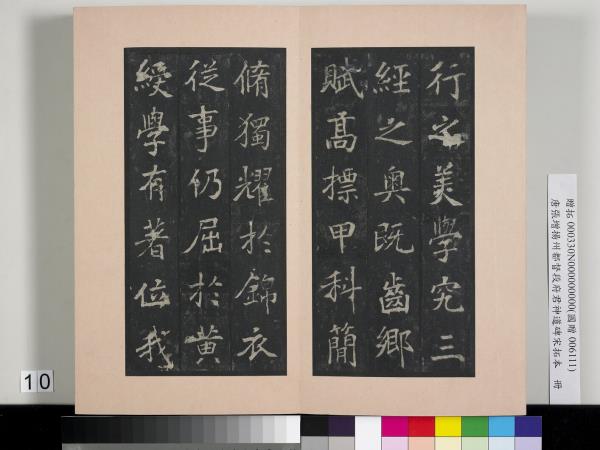 行之美學究三
經之奧既齒鄉
賦高標甲科簡
脩獨耀於錦衣
從事仍屈於黃
綬學有著位我
贈拓 000330N000000000(國贈 006111)
唐張增揚州都督段府君神道碑宋拓本 冊
10